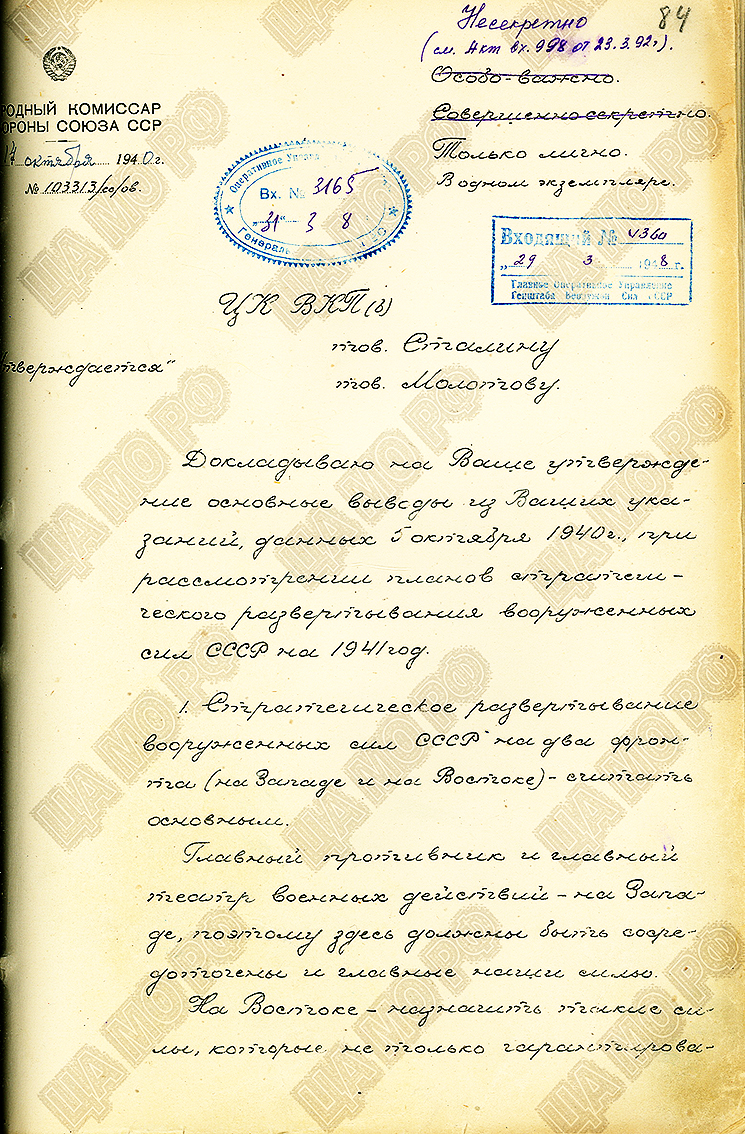 Несекретно
84
(см. Акт вх. 998 от 23.3.92г).
Особо-важно.
Совершенно секретно.
Только лично.
В одном экземпляре.
РОДНЫЙ КОМИССАР
ОРОНЫ СОЮЗА ССР
октября 1940г.
№ 103313/сс/ов.
Оперативное Управ
Вх. № 3165
„31“ 3 8
Генерал
Входящий № 4360
„29 3 1948 г.
Главное Оперативное Управление
Генштаба Вооружен Сил СССР
ЦК ВКП(б)
тов. Сталину
тов. Молотову.
тверждается“
Докладываю на Ваше утвержде-
ние основные выводы из Ваших ука-
заний, данных 5 октября 1940г., при
рассмотрении планов стратеги-
ческого развертывания вооруженных
сил СССР на 1941 год.
1. Стратегическое развертывание
вооруженных сил СССР на два фрон-
та (на Западе и на Востоке) - считать
основным.
Главный противник и главный
театр военных действий - на Запа-
де, поэтому здесь должны быть сосре-
доточены и главные наши силы.
На Востоке - назначить такие си-
лы, которые не только гарантирова-
ЦА МО РФ